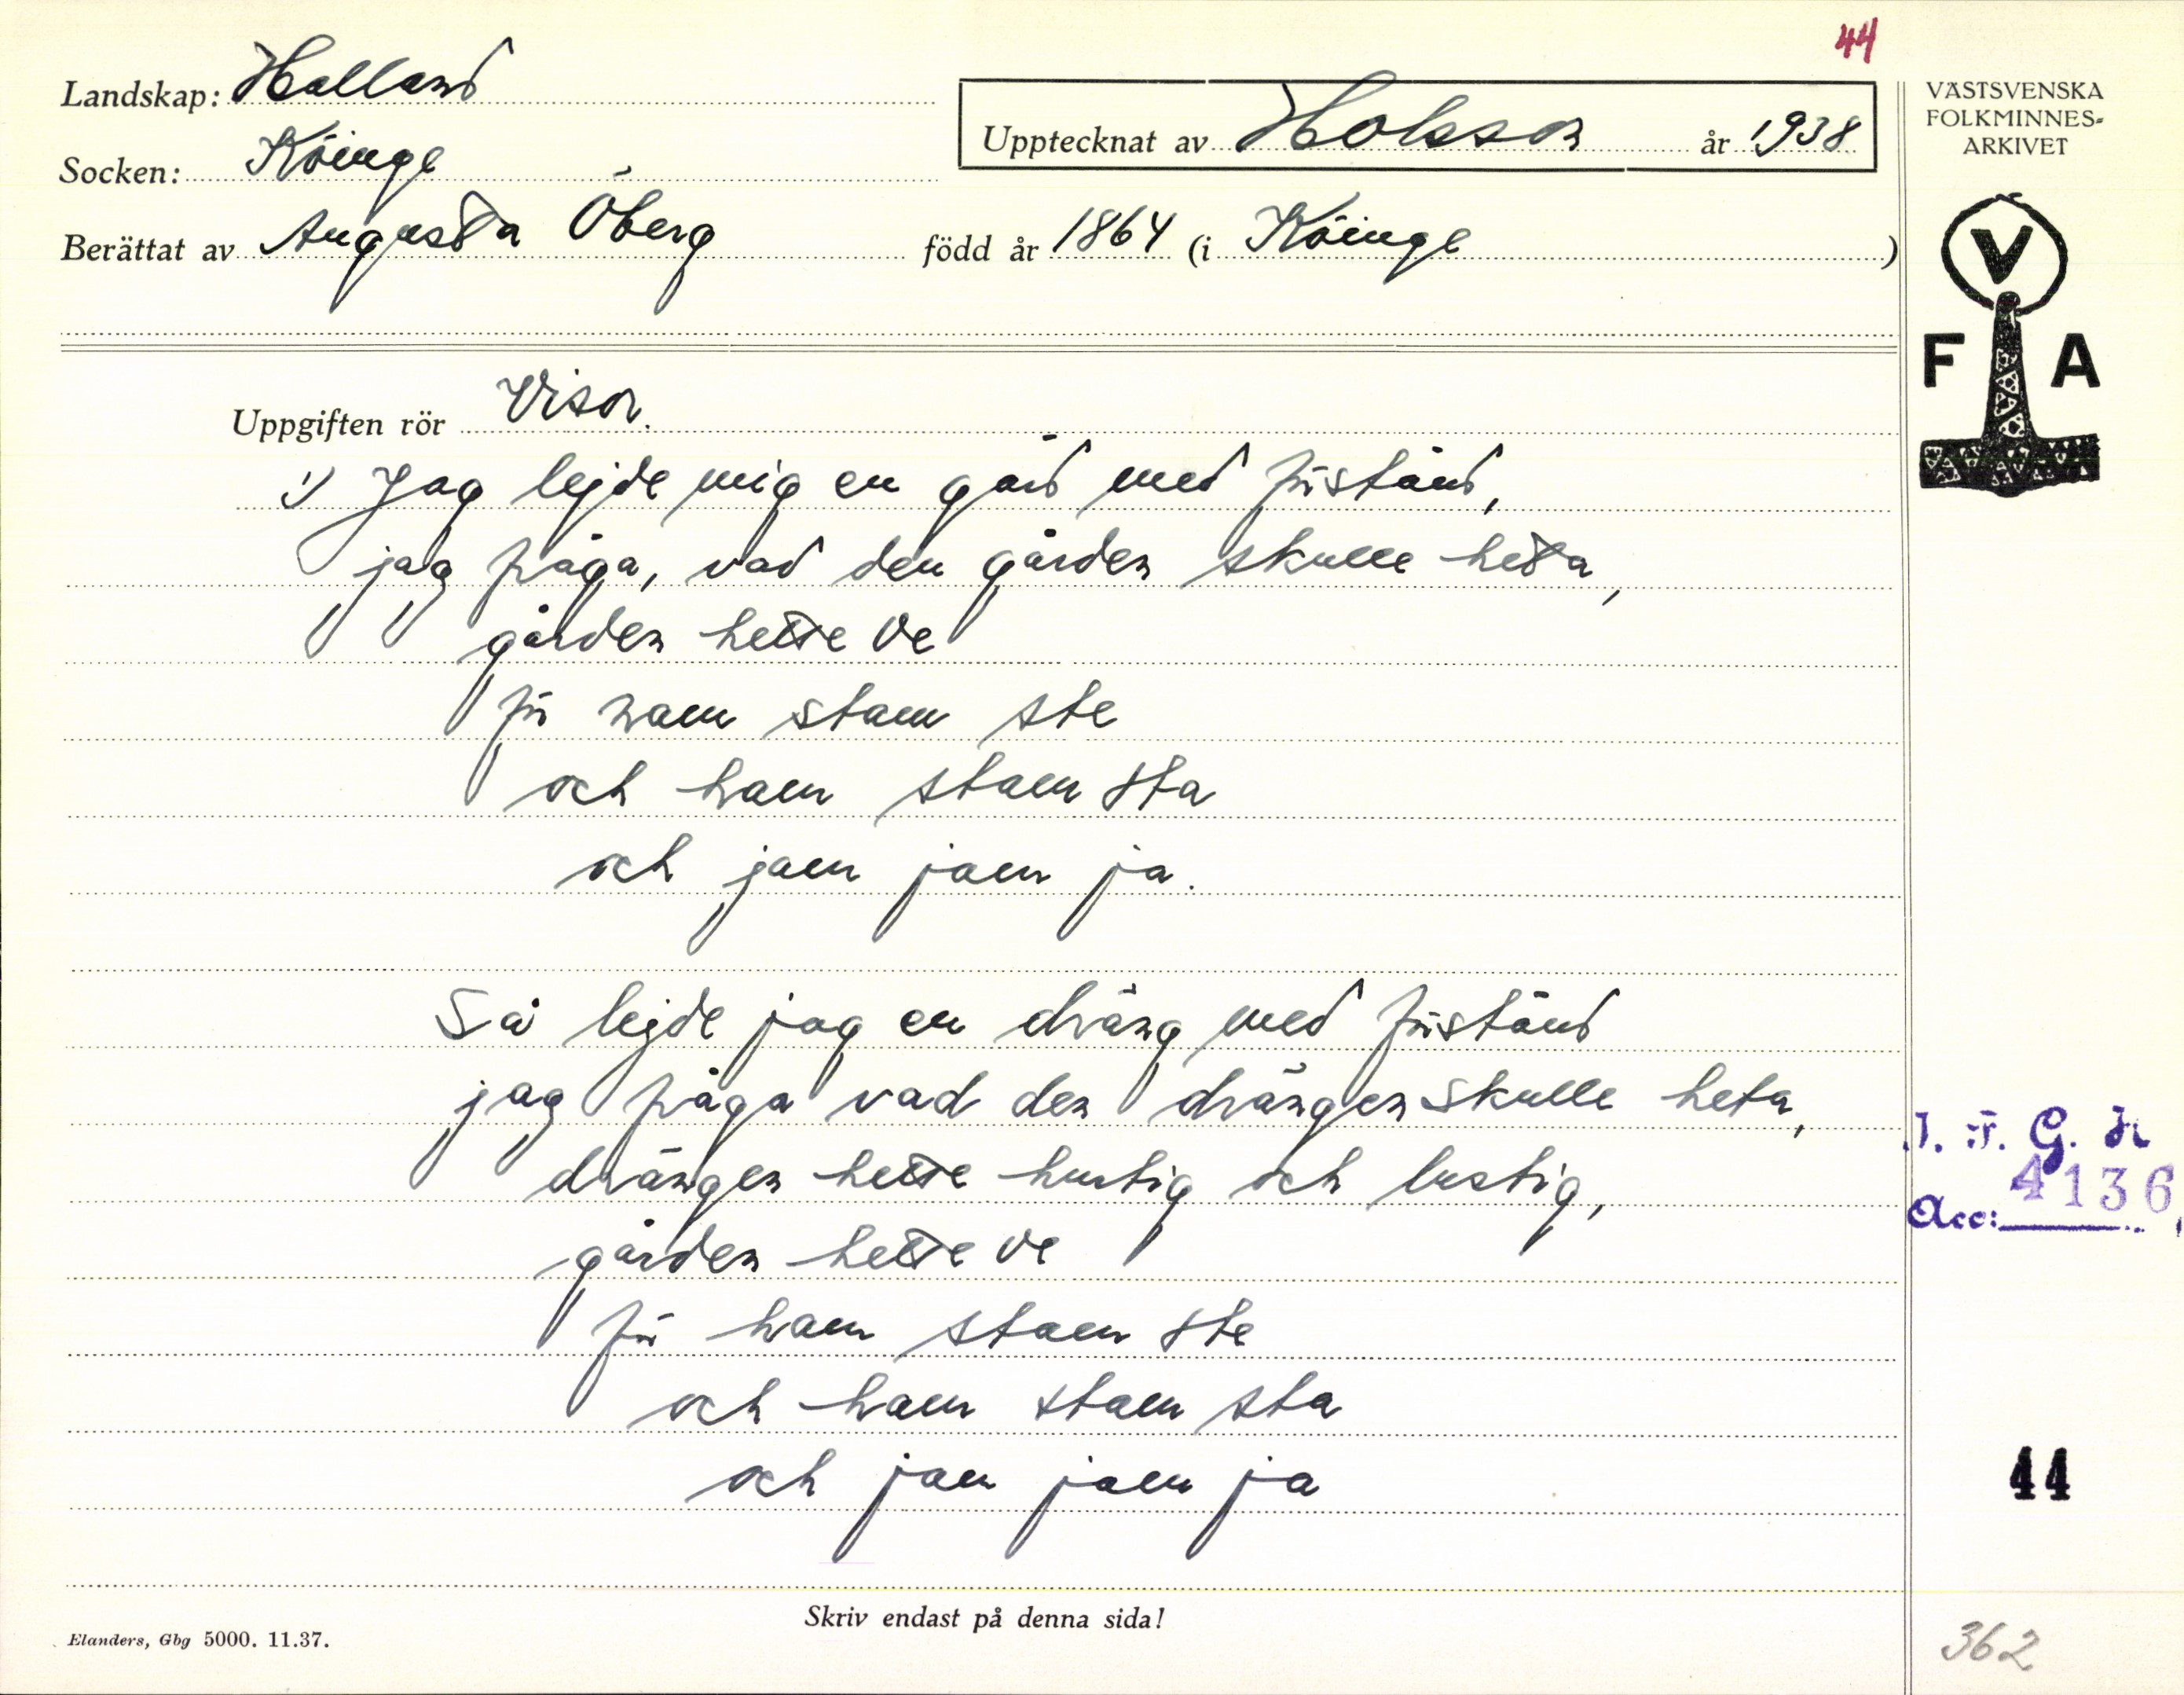 44
Landskap: Halland
Upptecknat av Holsson år 1938
VÄSTSVENSKA
FOLKMINNES-
ARKIVET
Socken: Köinge
Berättat av Augusta Öberg född år 1864 (i Köinge)
V
F A
Uppgiften rör Visor.
1) Jag lejde mig en gård med förstånd,
jag fråga, vad den gården skulle heta,
gården hette Ve
för ram stam ste
och ham stam sta
och jam jam ja.
Så lejde jag en dräng med förstånd
jag fråga vad den drängen skulle heta,
drängen hette hurtig och lustig,
gården hette ve
för ham stam ste
och ham stam sta
och jam jam ja
I. F. G. H
Acc: 4136.
44
Skriv endast på denna sida!
Elanders, Gbg 5000. 11.37.
362